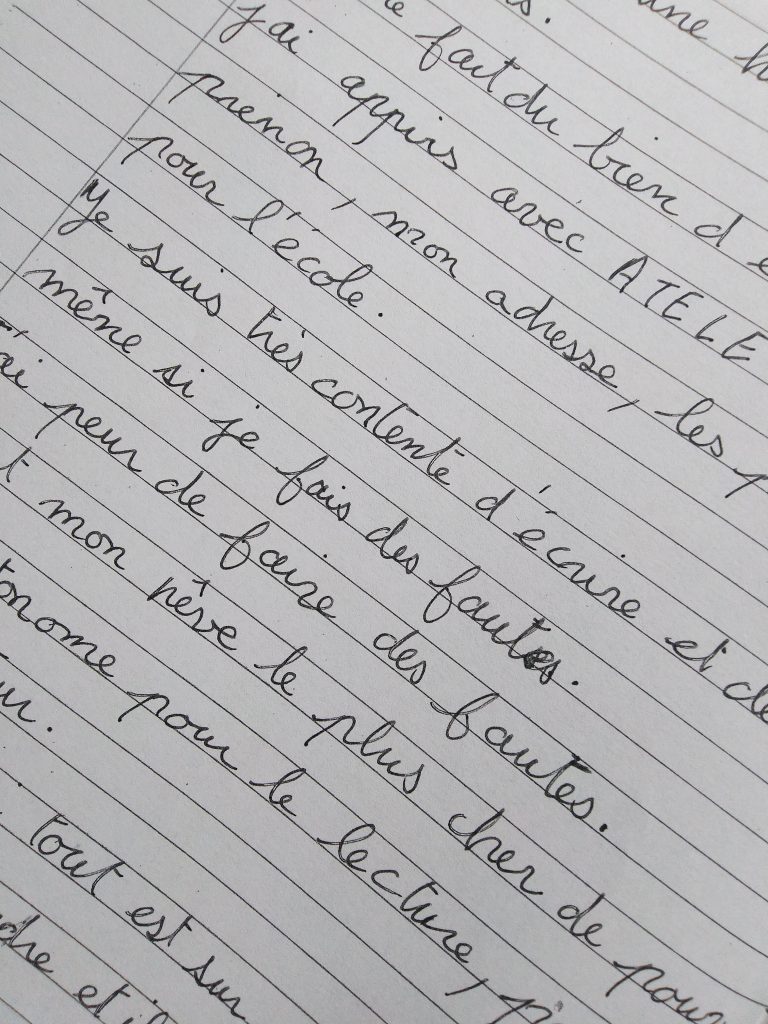 une
fait du bien d
j'ai appris avec ATELE
prénon, mon adresse, les
pour l'école.
Je suis très contente d'écrire et de
même si je fais des fautes.
ai peur de faire des fautes.
t mon rêve le plus cher de pour
tonome pour le lecture, p
ur.
tout est sur
dre et il